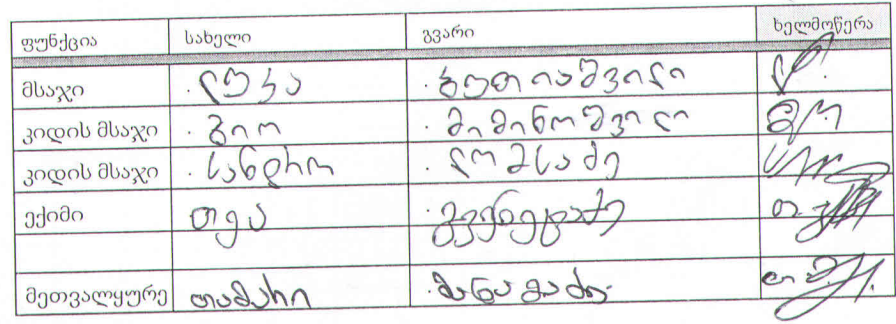 ფუნქცია სახელი გვარი ხელმოწერა
მსაჯი ლუკა ბუთიაშვილი
კიდის მსაჯი გიო მიმინოშვილი
კიდის მსაჯი სანდრო ლომსაძე
ექიმი თეა
მეთვალყურე თამარი მანაგაძე